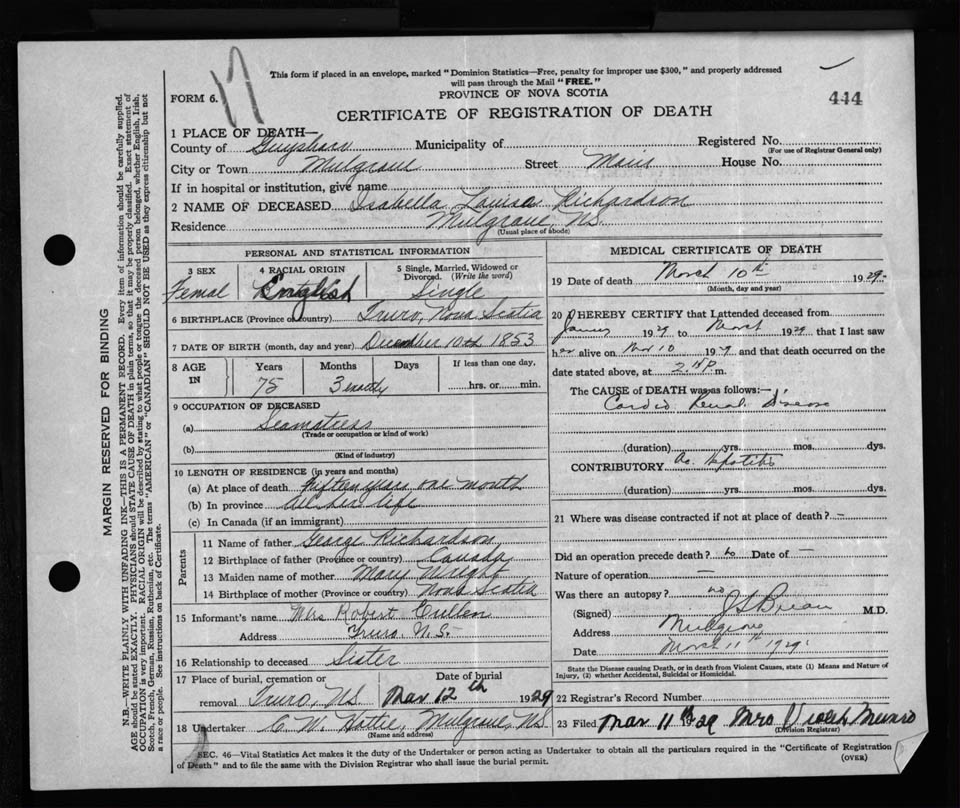 17
This form if placed in an envelope, marked "Dominion Statistics—Free, penalty for improper use $300," and properly addressed
will pass through the Mail "FREE."
FORM 6.
PROVINCE OF NOVA SCOTIA
444
CERTIFICATE OF REGISTRATION OF DEATH
1 PLACE OF DEATH—
County of Guysboro Municipality of Registered No.
(For use of Registrar General only)
City or Town Mulgrave Street Main House No.
If in hospital or institution, give name
2 NAME OF DECEASED Isabella Louise Richardson
Residence Mulgrave, N.S.
(Usual place of abode)
MARGIN RESERVED FOR BINDING
N.B.—WRITE PLAINLY WITH UNFADING INK—THIS IS A PERMANENT RECORD. Every item of information should be carefully supplied.
AGE should be stated EXACTLY. PHYSICIANS should STATE CAUSE OF DEATH in plain terms, so that it may be properly classified. Exact statement of
OCCUPATION is very important. RACIAL ORIGIN will be described by stating to what people or tongue the deceased person belonged, whether English, Irish,
Scotch, French, German, Russian, Ruthenian, etc. The terms "AMERICAN" or "CANADIAN" SHOULD NOT BE USED as they express citizenship but not
a race or people. See instructions on back of Certificate.
PERSONAL AND STATISTICAL INFORMATION
3 SEX
Femal
4 RACIAL ORIGIN
English
5 Single, Married, Widowed or
Divorced. (Write the word)
Single
6 BIRTHPLACE (Province or country) Truro, Nova Scotia
7 DATE OF BIRTH (month, day and year) December 10th 1853
8 AGE
IN
Years
75
Months
3 exactly
If less than one day,
hrs. or min.
9 OCCUPATION OF DECEASED
(a) Seamstress
(Trade or occupation or kind of work)
(b)
(Kind of industry)
10 LENGTH OF RESIDENCE (in years and months)
(a) At place of death fifteen years one month
(b) In province all her life
(c) In Canada (if an immigrant)
Parents
11 Name of father George Richardson
12 Birthplace of father (Province or country) Canada
13 Maiden name of mother Mary Wright
14 Birthplace of mother (Province or country) Nova Scotia
15 Informant's name Mrs Robert Cullen
Address Truro N.S.
16 Relationship to deceased Sister
17 Place of burial, cremation or
removal Truro, N.S.
Date of burial
Mar 12th 1929
18 Undertaker C. W. Hattie, Mulgrave, N.S.
(Name and address)
MEDICAL CERTIFICATE OF DEATH
19 Date of death March 10th 1929
(Month, day and year)
20 I HEREBY CERTIFY that I attended deceased from
1929 to March 1929, that I last saw
her alive on Mar 10 1929 and that death occurred on the
date stated above, at 2 P m.
The CAUSE of DEATH was as follows:—
Cardio Renal Disease
(duration) yrs. mos. dys.
CONTRIBUTORY
(duration) yrs. mos. dys.
21 Where was disease contracted if not at place of death?
Did an operation precede death? no Date of —
Nature of operation —
Was there an autopsy? no
(Signed) M.D.
Address Mulgrave
Date March 11th 1929
State the Disease causing Death, or in death from Violent Causes, state (1) Means and Nature of
Injury, (2) whether Accidental, Suicidal or Homicidal.
22 Registrar's Record Number
23 Filed Mar 11th 29 Mrs Violet Munro
(Division Registrar)
SEC. 46—Vital Statistics Act makes it the duty of the Undertaker or person acting as Undertaker to obtain all the particulars required in the "Certificate of Registration
of Death" and to file the same with the Division Registrar who shall issue the burial permit.
(OVER)